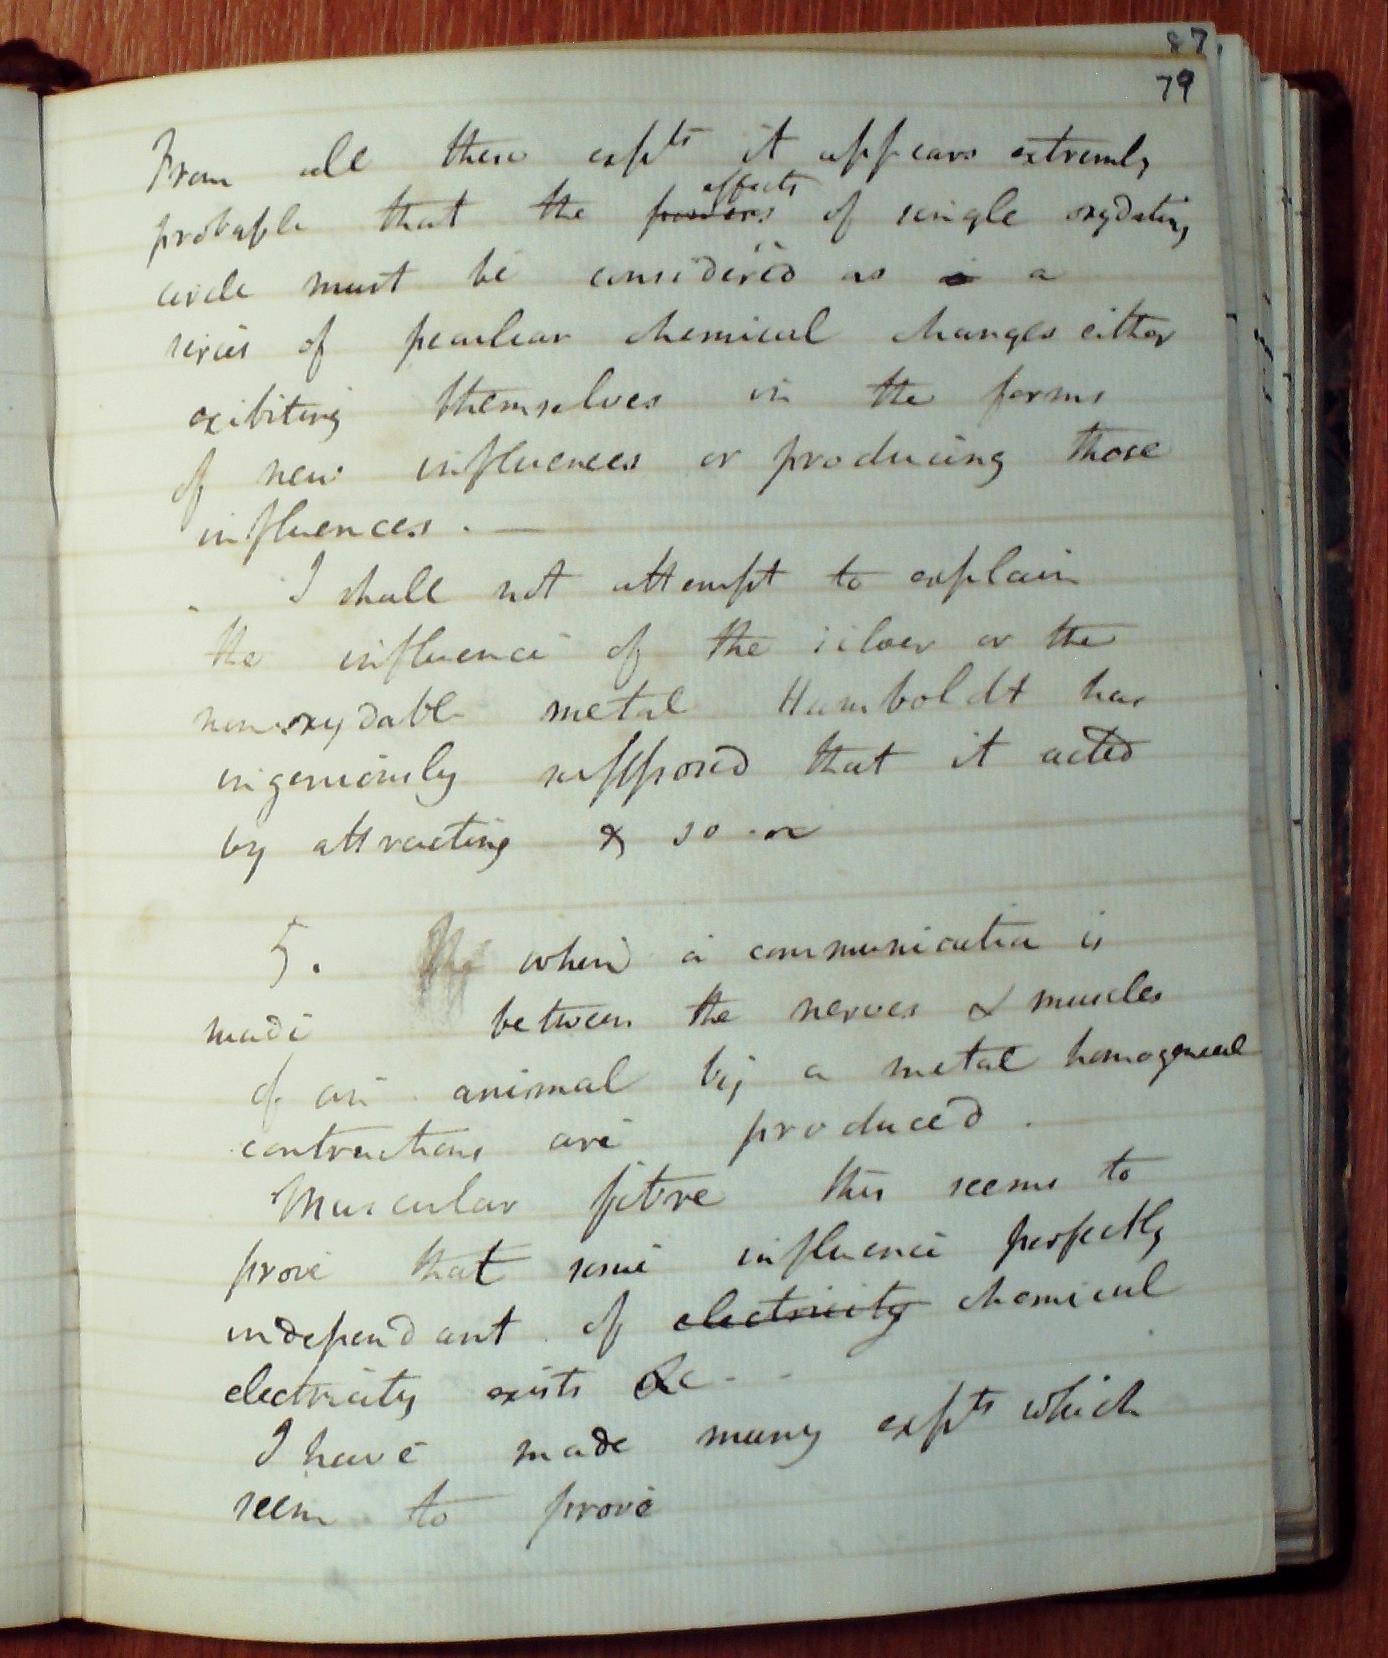 87.
79
From all these expts it appears extremely
probable that the powers effects of single oxydating
circle must be considered as a a
series of peculiar chemical changes either
exibiting themselves in the forms
of new influences or producing those
influences. —
I shall not attempt to explain
the influence of the silver or the
non-oxydable metal Humboldt has
ingeniously supposed that it acted
by attracting & so on
5. The when a communication is
made between the nerves & muscles
of an animal by a metal homogeneal
contractions are produced.
Muscular fibre this seems to
prove that some influence perfectly
independant of electricity chemical
electricity exists &c - -
I have made many expts which
seem to prove